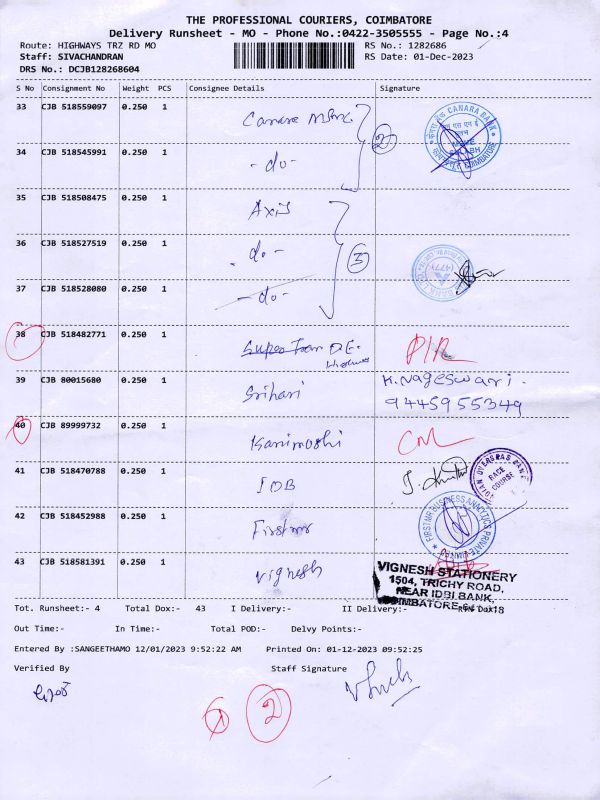 THE PROFESSIONAL COURIERS, COIMBATORE
Delivery Runsheet - MO - Phone No.:0422-3505555 - Page No.:4
Route: HIGHWAYS TRZ RD MO RS No.: 1282686
Staff: SIVACHANDRAN RS Date: 01-Dec-2023
DRS No.: DCJB128268604
S No Consignment No Weight PCS Consignee Details Signature
33 CJB 518559097 0.250 1 Canara CANARA BANK
34 CJB 518545991 0.250 1 -do- 2 COIMBATORE
35 CJB 518508475 0.250 1 Axis
36 CJB 518527519 0.250 1 -do- 3
37 CJB 518528080 0.250 1 -do-
38 CJB 518482771 0.250 1
39 CJB 80015680 0.250 1 Srihari K. Nageswari.
9445955349
40 CJB 89999732 0.250 1 Kanimoshi CM
41 CJB 518470788 0.250 1 IOB INDIAN OVERSEAS BANK
RACE
COURSE
42 CJB 518452988 0.250 1 Firstmr FIRSTMR BUSINESS ANALYTICS PRIVATE LIMITED
43 CJB 518581391 0.250 1 Vignesh VIGNESH STATIONERY
1504, TRICHY ROAD,
NEAR IDBI BANK,
COIMBATORE-641 018
Tot. Runsheet:- 4 Total Dox:- 43 I Delivery:- II Delivery:-
Out Time:- In Time:- Total POD:- Delvy Points:-
Entered By :SANGEETHAMO 12/01/2023 9:52:22 AM Printed On: 01-12-2023 09:52:25
Verified By Staff Signature
2